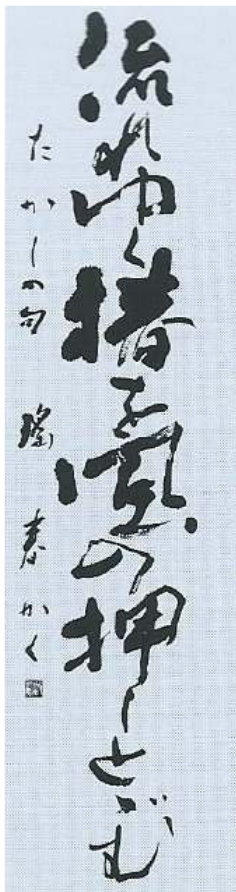 流れゆく椿を風の押しとゞむ
たかしの句 瑞春かく